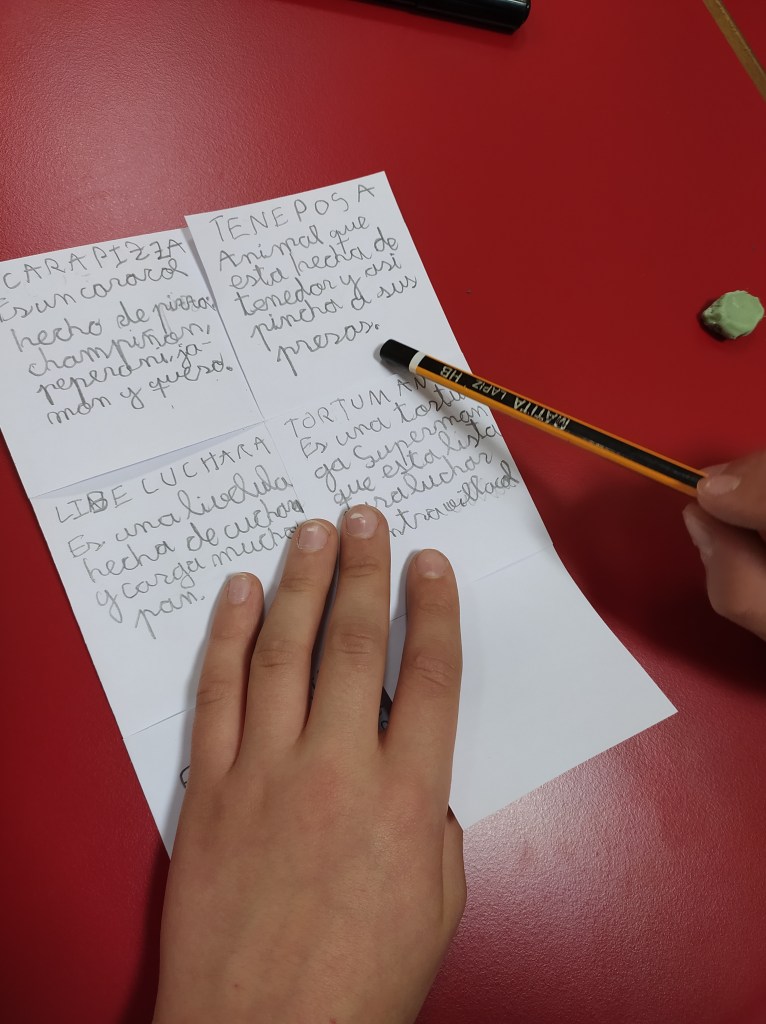 CARAPIZZA
Es un caracol
hecho de pizza,
champiñon,
peperoni, ja-
mon y queso.
TENEPOSA
Animal que
esta hecha de
tenedor y asi
pincha a sus
presas.
LIBECUCHARA
Es una livelula
hecha de cuchara
y carga mucho
pan.
TORTUMAN
Es una tortu
ga Superman
que esta lista
luchar
villacol
MATITA LAPIZ HB